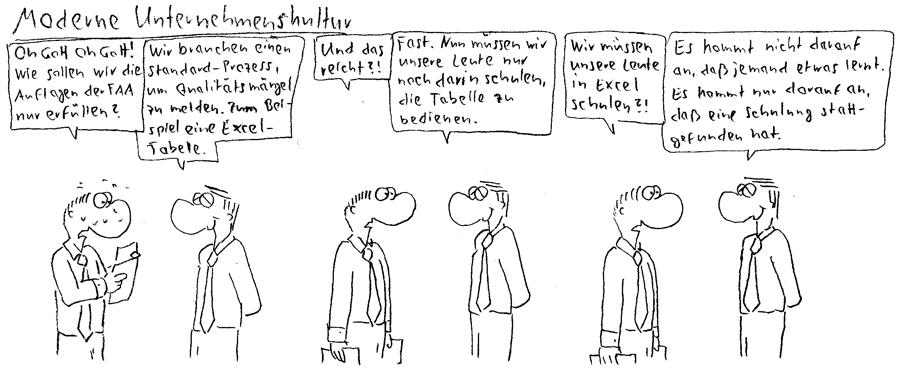 Moderne Unternehmenskultur
Oh Gott Oh Gott!
Wie sollen wir die
Auflagen der FAA
nur erfüllen?
Wir brauchen einen
Standard-Prozess,
um Qualitätsmängel
zu melden. Zum Bei-
spiel eine Excel-
Tabelle.
Und das
reicht?!
Fast. Nun müssen wir
unsere Leute nur
noch darin schulen,
die Tabelle zu
bedienen.
Wir müssen
unsere Leute
in Excel
schulen?!
Es kommt nicht darauf
an, daß jemand etwas lernt.
Es kommt nur darauf an,
daß eine Schulung statt-
gefunden hat.